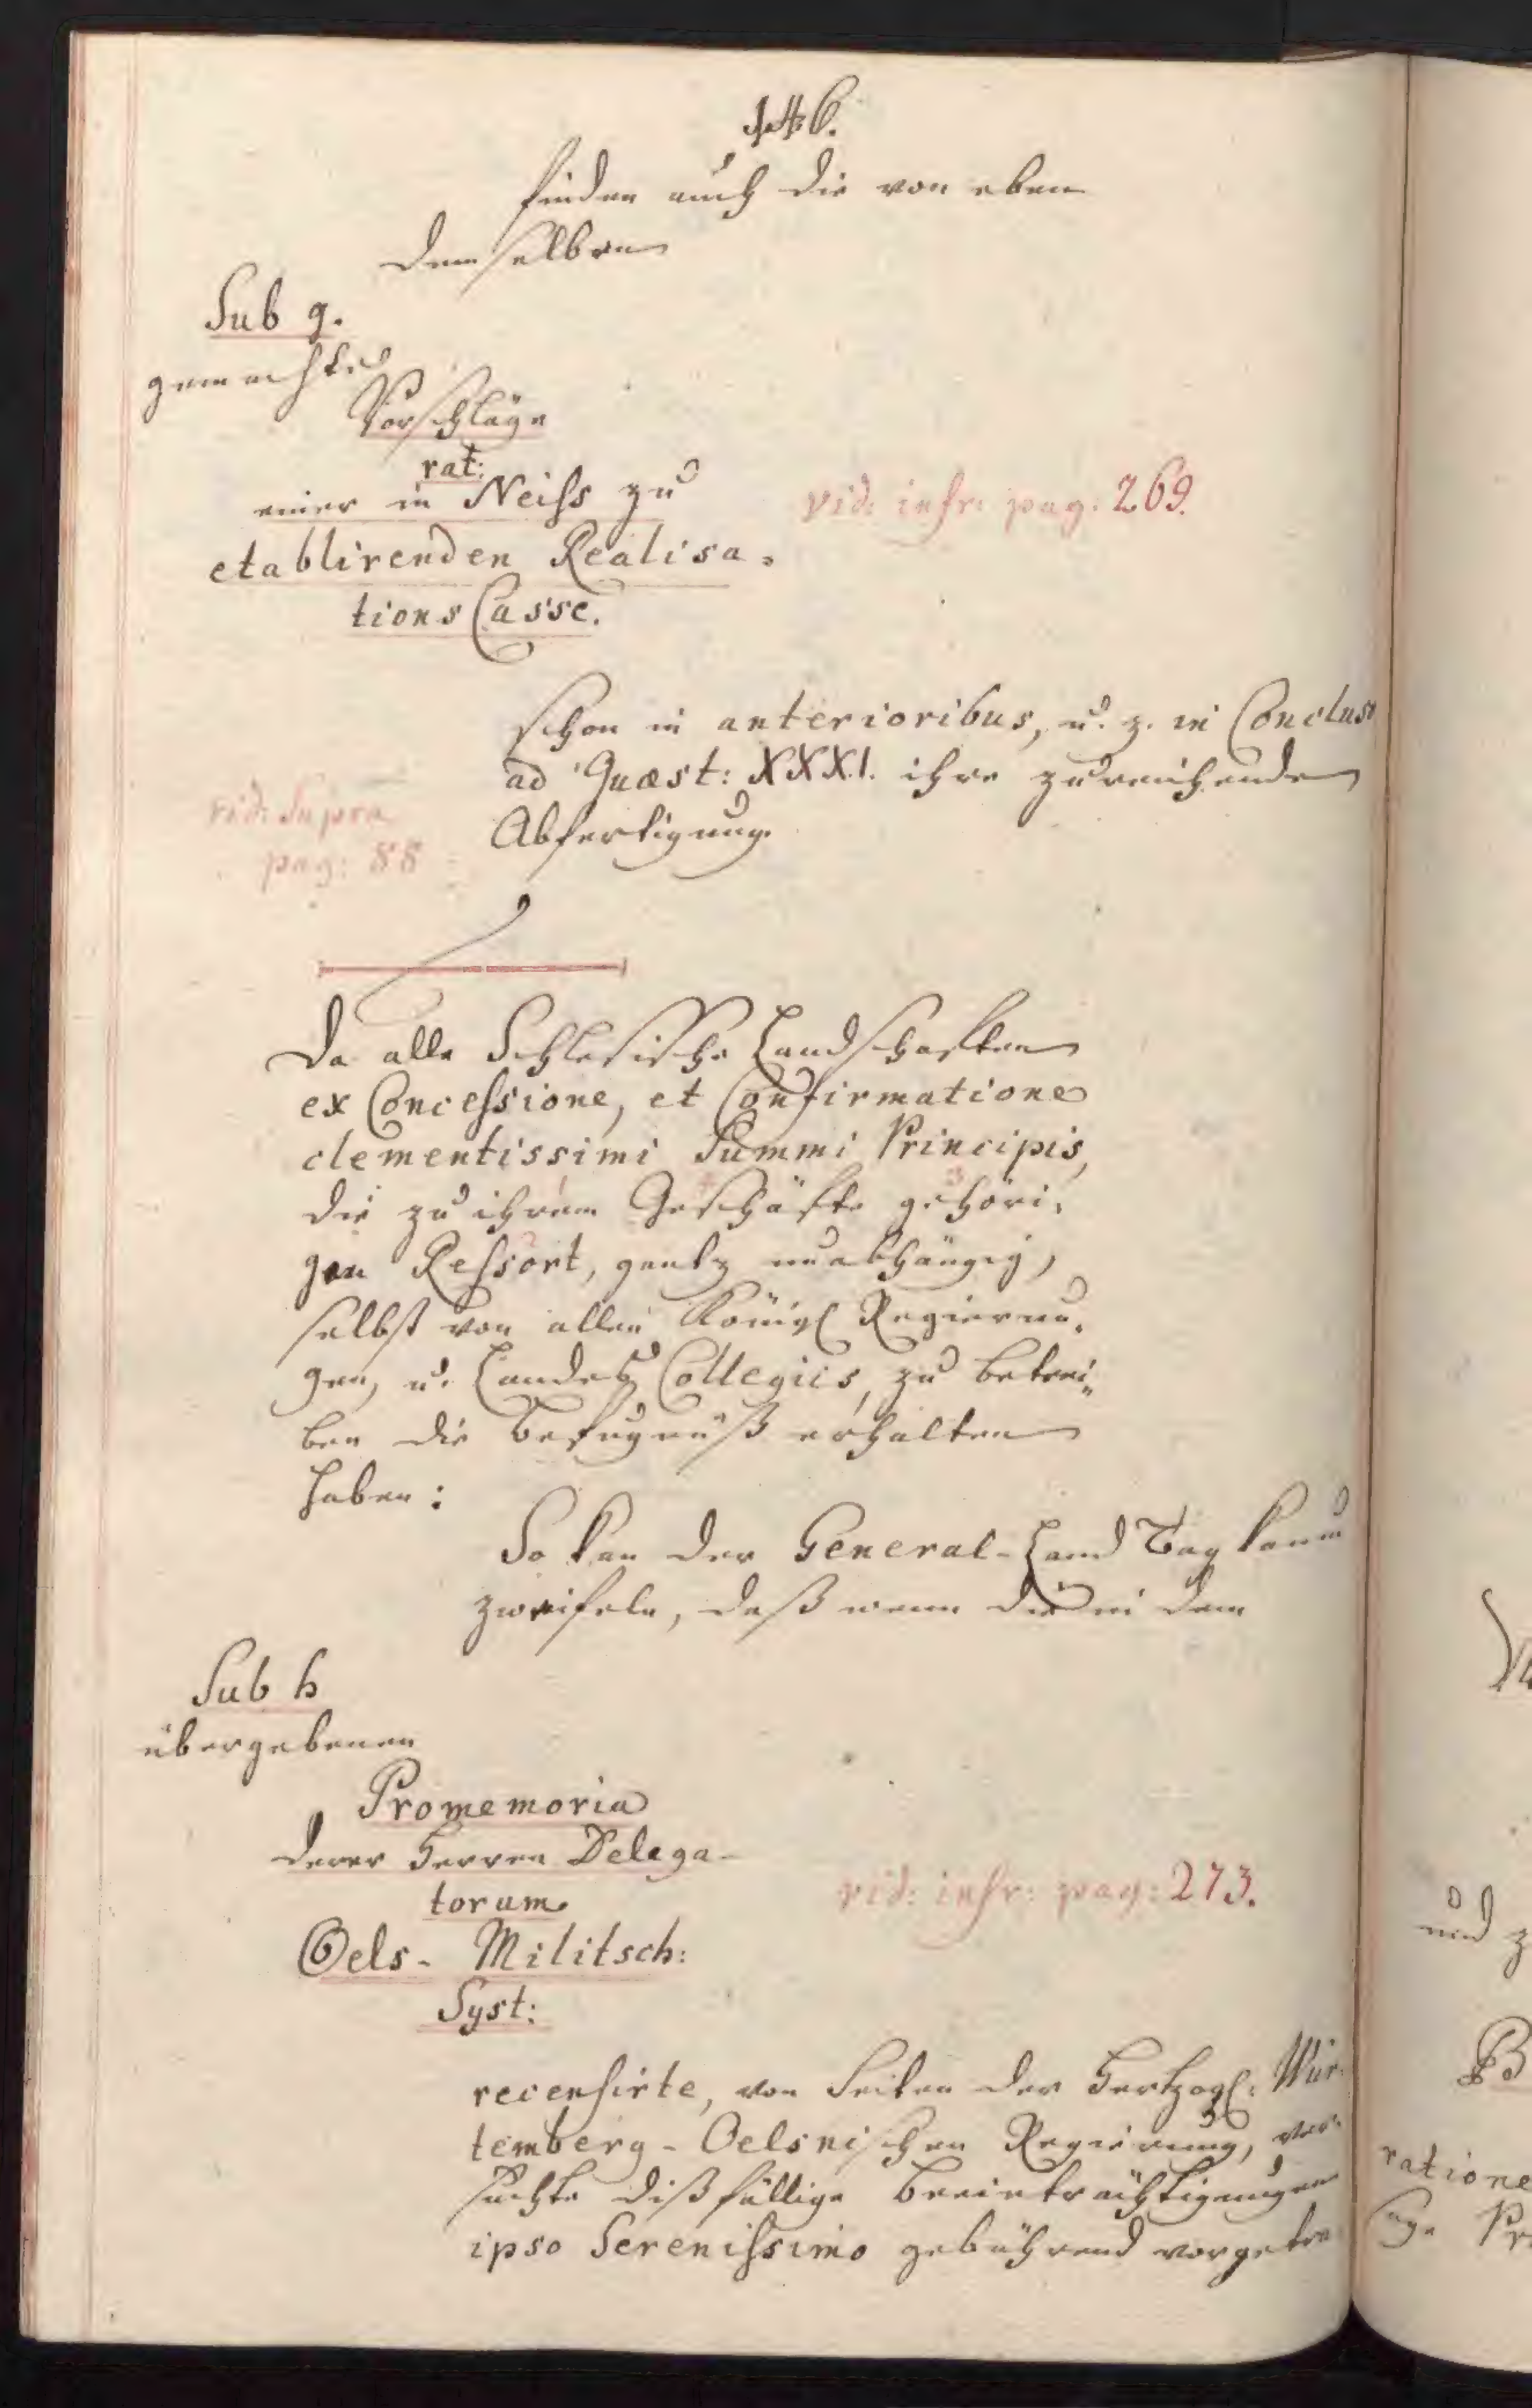 146.
finden auch die von eben
demselben
Sub g.
gemachte
Vorschläge
rat:
einer in Neiss zu
etablirenden Realisa-
tions Casse.
vid: infr: pag: 269.
schon in anterioribus, u. z. in Concluso
ad Quæst: XXXI. ihre zureichende
Abfertigung.
vid: Supra
pag: 88
Da alle Schlesische Landschaften
ex Concessione, et Confirmatione
clementissimi Summi Principis,
die zu ihrem Geschäfte gehöri-
gen Ressort, gantz unabhängig,
selbst von allen Königl Regierun-
gen, u. Landes Collegiis, zu betrei-
ben die Befugnüß erhalten
haben:
So kan der General-Land Tag kaum
zweifeln, daß wenn die in dem
Sub h
übergebenen
Promemoria
derer Herren Delega-
torum
Oels- Militsch:
Syst:
vid: infr: pag: 273.
recensirte, von Seiten der Hertzogl: Wür-
temberg-Oelsnischen Regierung, ver-
suchte dißfällige Beeinträchtigungen
ipso Serenissimo gebührend vorgetra
und z
B
ratione